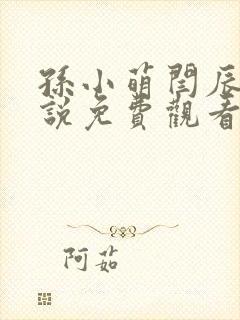 孫小萌閆辰
說免費觀看
阿茹